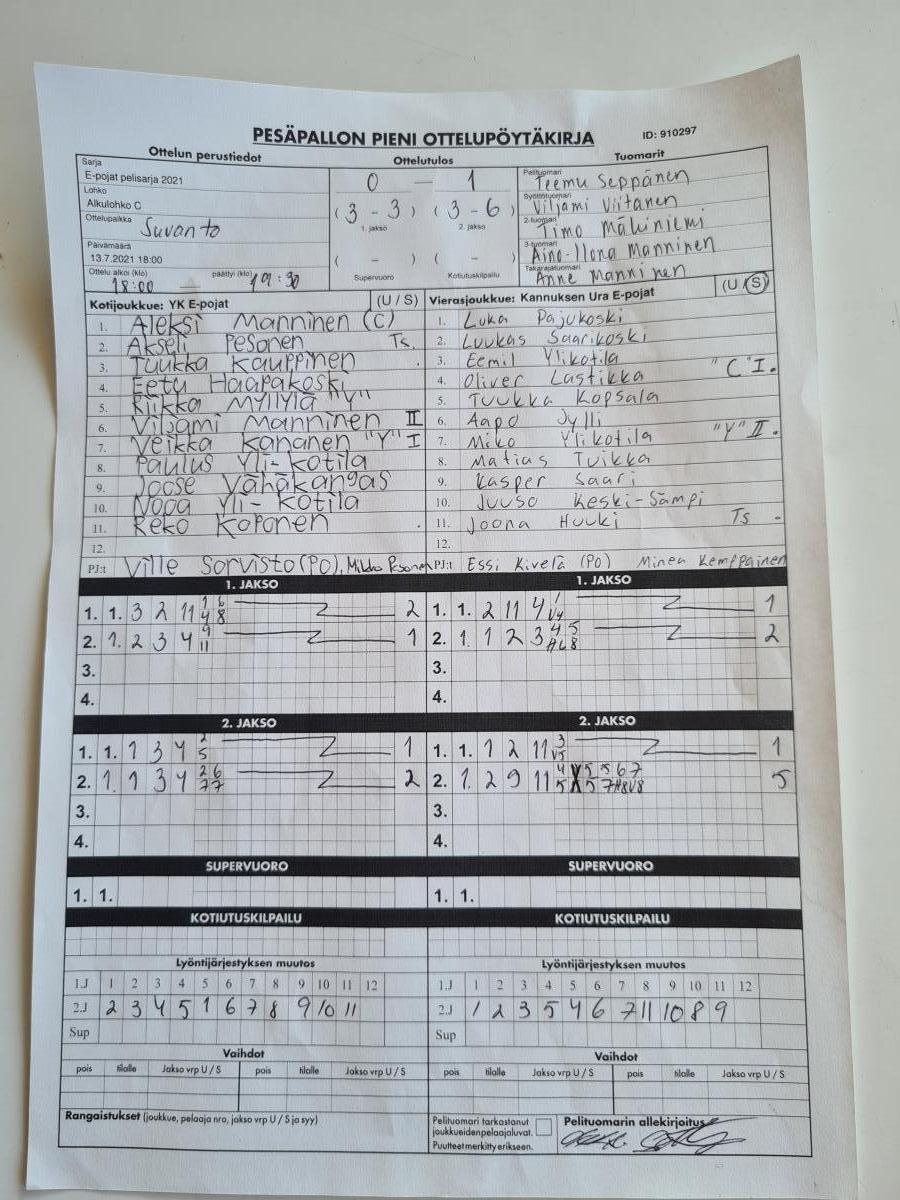 PESÄPALLON PIENI OTTELUPÖYTÄKIRJA ID: 910297
Ottelun perustiedot Ottelutulos Tuomarit
Sarja
E-pojat pelisarja 2021
Lohko
Alkulohko C
Ottelupaikka Suvanto
Päivämäärä
13.7.2021 18:00
Ottelu alkoi (klo) päättyi (klo)
18:00 19:30
0 — 1
(3 - 3) (3 - 6)
1. jakso 2. jakso
( - ) ( - )
Supervuoro Kotiutuskilpailu
Pelituomari Teemu Seppänen
Syöttötuomari Viljami Viitanen
2-tuomari Timo Mäkiniemi
3-tuomari Aino-Ilona Manninen
Takarajatuomari Anne Manninen
Kotijoukkue: YK E-pojat (U / S)
1. Aleksi Manninen (C)
2. Akseli Pesonen Ts.
3. Tuukka Kauppinen
4. Eetu Haapakoski
5. Riikka Myllylä "Y"
6. Viljami Manninen II
7. Veikka Kananen "Y" I
8. Paulus Yli-kotila
9. Joose Vähäkangas
10. Nooa Yli-kotila
11. Reko Koponen
12.
PJ:t Ville Sorvisto (PO), Mikko Pesonen
Vierasjoukkue: Kannuksen Ura E-pojat (U / S)
1. Luka Pajukoski
2. Luukas Saarikoski
3. Eemil Ylikotila
4. Oliver Lastikka "C" I.
5. Tuukka Kopsala
6. Aapo Jylli
7. Miko Ylikotila "Y" II.
8. Matias Tuikka
9. Kasper Saari
10. Juuso Keski-Sämpi
11. Joona Huuki Ts
12.
PJ:t Essi Kivelä (PO) Minea Kemppainen
1. JAKSO
1. 1. 3 2 11 1 6 2
4 8
2. 1. 2 3 4 4 1
11
3.
4.
1. JAKSO
1. 1. 2 11 4 1 1
V4
2. 1. 1 2 3 4 5 2
AL8
3.
4.
2. JAKSO
1. 1. 1 3 4 2 1
5
2. 1. 1 3 4 2 6 2
7 7
3.
4.
2. JAKSO
1. 1. 1 2 11 3 1
V5
2. 1. 2 9 11 4 5 5 6 7 5
3.
4.
SUPERVUORO
1. 1.
SUPERVUORO
1. 1.
KOTIUTUSKILPAILU
KOTIUTUSKILPAILU
Lyöntijärjestyksen muutos
1.J 1 2 3 4 5 6 7 8 9 10 11 12
2.J 2 3 4 5 1 6 7 8 9 10 11
Sup
Lyöntijärjestyksen muutos
1.J 1 2 3 4 5 6 7 8 9 10 11 12
2.J 1 2 3 5 4 6 7 11 10 8 9
Sup
Vaihdot
pois tilalle Jakso vrp U / S pois tilalle Jakso vrp U / S
Vaihdot
pois tilalle Jakso vrp U / S pois tilalle Jakso vrp U / S
Rangaistukset (joukkue, pelaaja nro, jakso vrp U / S ja syy)
Pelituomari tarkastanut
joukkueiden pelaajaluvat.
Puutteet merkitty erikseen.
Pelituomarin allekirjoitus